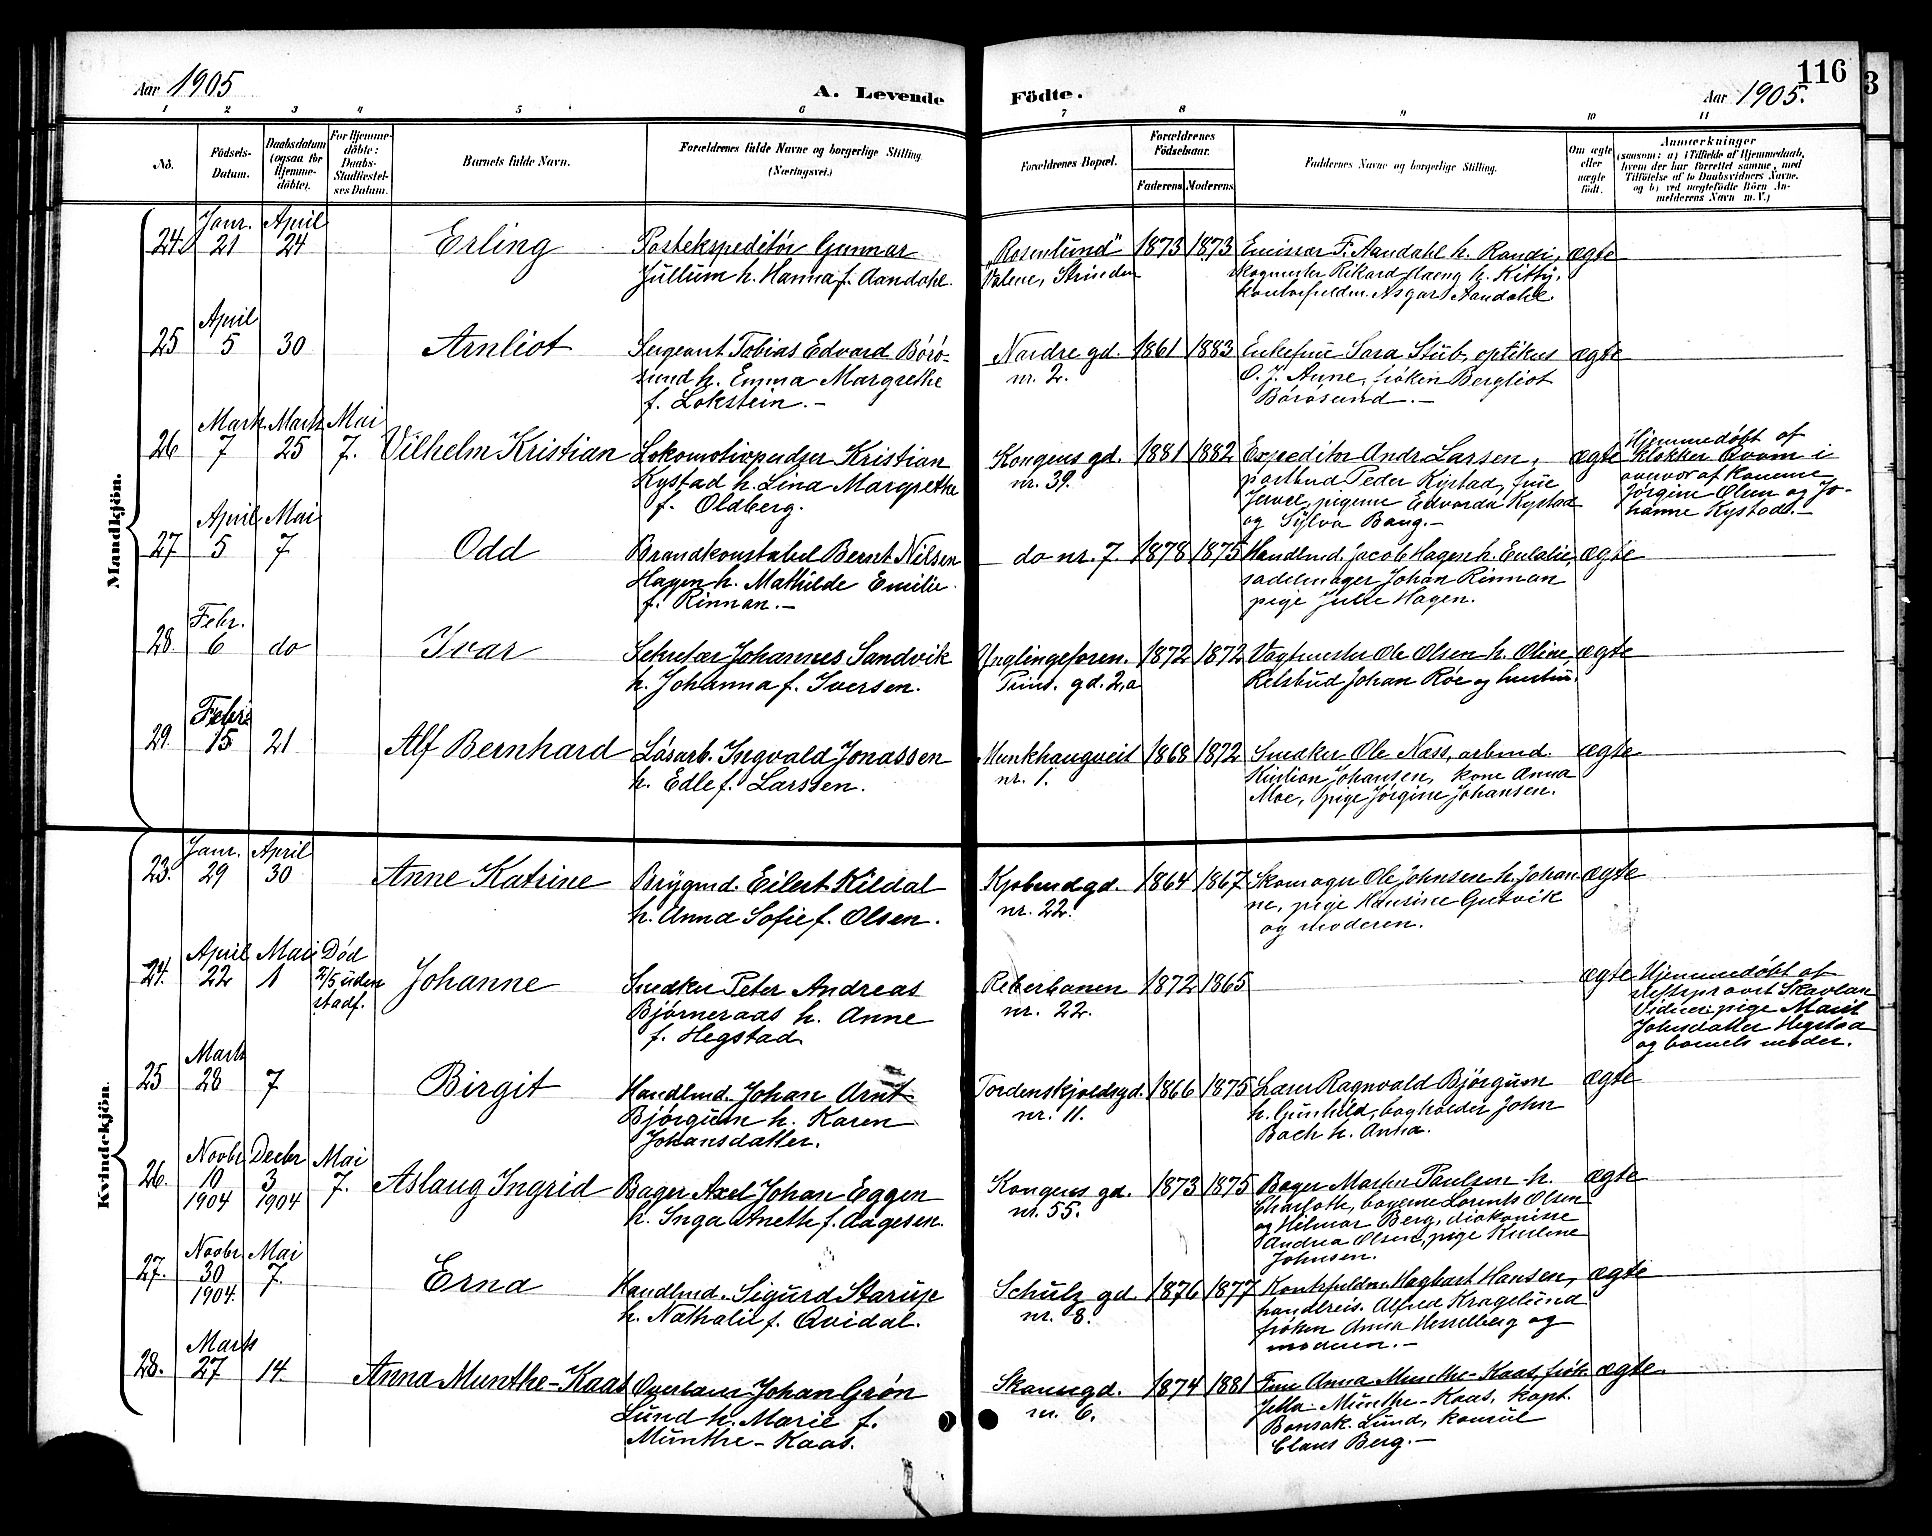 Aar 1905
A. Levende
Födte.
Aar 1905.
116
3
1 2 3 4 5 6 7 8 9 10 11
No.
Födsels-
Datum.
Daabsdatum
(ogsaa for
Hjemme-
döbte).
For Hjemme-
döbte:
Daabs-
Stadfæstel-
ses Datum.
Barnets fulde Navn.
Forældrenes fulde Navne og borgerlige Stilling
(Næringsvei.)
Forældrenes Bopæl.
Forældrenes
Födselsaar.
Faderens Moderens
Faddernes Navne og borgerlige Stilling.
Om ægte
eller
uægte
födt.
Anmærkninger
(saasom: a) i Tilfælde af Hjemmedaab,
hvem der har forrettet samme, med
Tilföielse af to Daabsvidners Navne,
og b) ved uægtefödte Börn An-
melderens Navn m. V.)
Mandkjön.
24. Janr. 21 April 24
Erling
Postekspeditör Gunnar
Jullum h. Hanna f. Aandahl.
"Rosenlund"
Valene, Strinden
1873 1873
Emissær F. Aandahl h. Randi,
skogmester Rikard Haeng h. Kitty,
kontorfuldm. Asgar Aandahl.
ægte
25 April 5 30
Arnliot
Sergeant Tobias Edvard Börö-
sund h. Emma Margrethe
f. Lokstein.-
Nordre gd.
nr. 2.
1861 1883
Enkefrue Sara Stub, optikus
O. J. Aune, fröken Bergliot
Börösund.-
ægte
26 Marts 7 Marts 25 Mai 7.
Vilhelm Kristian
Lokomotivpudser Kristian
Kystad h. Lina Margrethe
f. Oldberg.
Kongens gd.
nr. 39.
1881 1882
Expeditör Andr. Larsen,
postbud Peder Kystad, frue
Jervel, pigerne Edvarda Kystad
og Sylva Bang.-
ægte
Hjemmedöbt af
klokker Kvam i
overvær af konerne
Jörgine Olsen og Jo-
hanne Kystad.-
27 April 5 Mai 7
Odd
Brandkonstabel Bernt Nilsen
Hagen h. Mathilde Emilie
f. Rinnan.-
do nr. 7.
1878 1875
Handlmd. Jacob Hagen h. Eulalie,
sadelmager Johan Rinnan
pige Julie Hagen.
ægte
28. Febr. 6 do
Ivar
Sekretær Johannes Sandvik
h. Johanna f. Iversen.
Ynglingeforen.
Prins. gd. 2,a
1872 1872
Vagtmester Ole Olsen h. Oline,
Retsbud Johan Röe og hustru.
ægte
29. Febr. 15 21
Alf Bernhard
Lösarb. Ingvald Jonassen
h. Edle f. Larssen.
Munkhaugveit
nr. 1.
1868 1872
Snedker Ole Næss, arbmd.
Kristian Johansen, kone Anna
Moe, pige Jörgine Johansen.
ægte
Kvindekjön.
23. Janr. 29 April 30
Anne Katrine
Brygmd. Eilert Kildal
h. Anna Sofie f. Olsen.
Kjøbmdgd.
nr. 22.
1864 1867
Skomager Ole Johnsen h. Johan
ne, pige Gutvik
og moderen.
ægte
24. April 22 Mai 1
Död
2/5 uden
stadf.
Johanne
Snedker Peter Andreas
Bjørneraas h. Anne
f. Hegstad
Reberbanen
nr. 22.
1872 1865
ægte
Hjemmedöbt af
stiftsprovst Skavlan
Vidner: pige Marit
Johnsdatter Hegstad
og barnets moder.
25 Marts 28 7
Birgit
Handlmd. Johan Arnt
Bjørgum h. Karen
Johansdatter.
Tordenskjoldsgd.
nr. 11.
1866 1875
Lærer Ragnvald Bjørgum
h. Gunhild, bogholder John
Bach h. Anna.
ægte
26. Novbr. 10 1904 Decbr 3 1904 Mai 7.
Aslaug Ingrid
Bager Axel Johan Eggen
h. Inga Aneth f. Aagesen.
Kongens gd.
nr. 55.
1873 1875
Bager Martin Paulsen h.
Charlotte, bagerne Lorents Olsen
og Hilmar Berg, diakonisse
Andrea Olsen, pige
Johnsen.
ægte
27. Novbr 30 1904. Mai 7.
Erna
Handlmd. Sigurd Starup
h. Nathalie f. Qvidal.
Schulz gd.
nr. 8.
1876 1877
Kontrfuldm. Hagbart Hansen,
handelsreis. Alfred Kragelund
fröken Anna Hesselberg og
moderen.-
ægte
28. Marts 27 14.
Anna Munthe-Kaas
Overlærer Johan Grön
Lund h. Marie f.
Munthe-Kaas.
Skansegd.
nr. 6.
1874 1881
Frue Anna Munthe-Kaas, frök.
Jella Munthe-Kaas, kapt.
Bonsak Lund, konsul
Claus Berg.-
ægte.